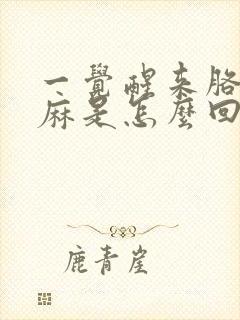 一覺醒来胳
麻是怎麼回
鹿青崖